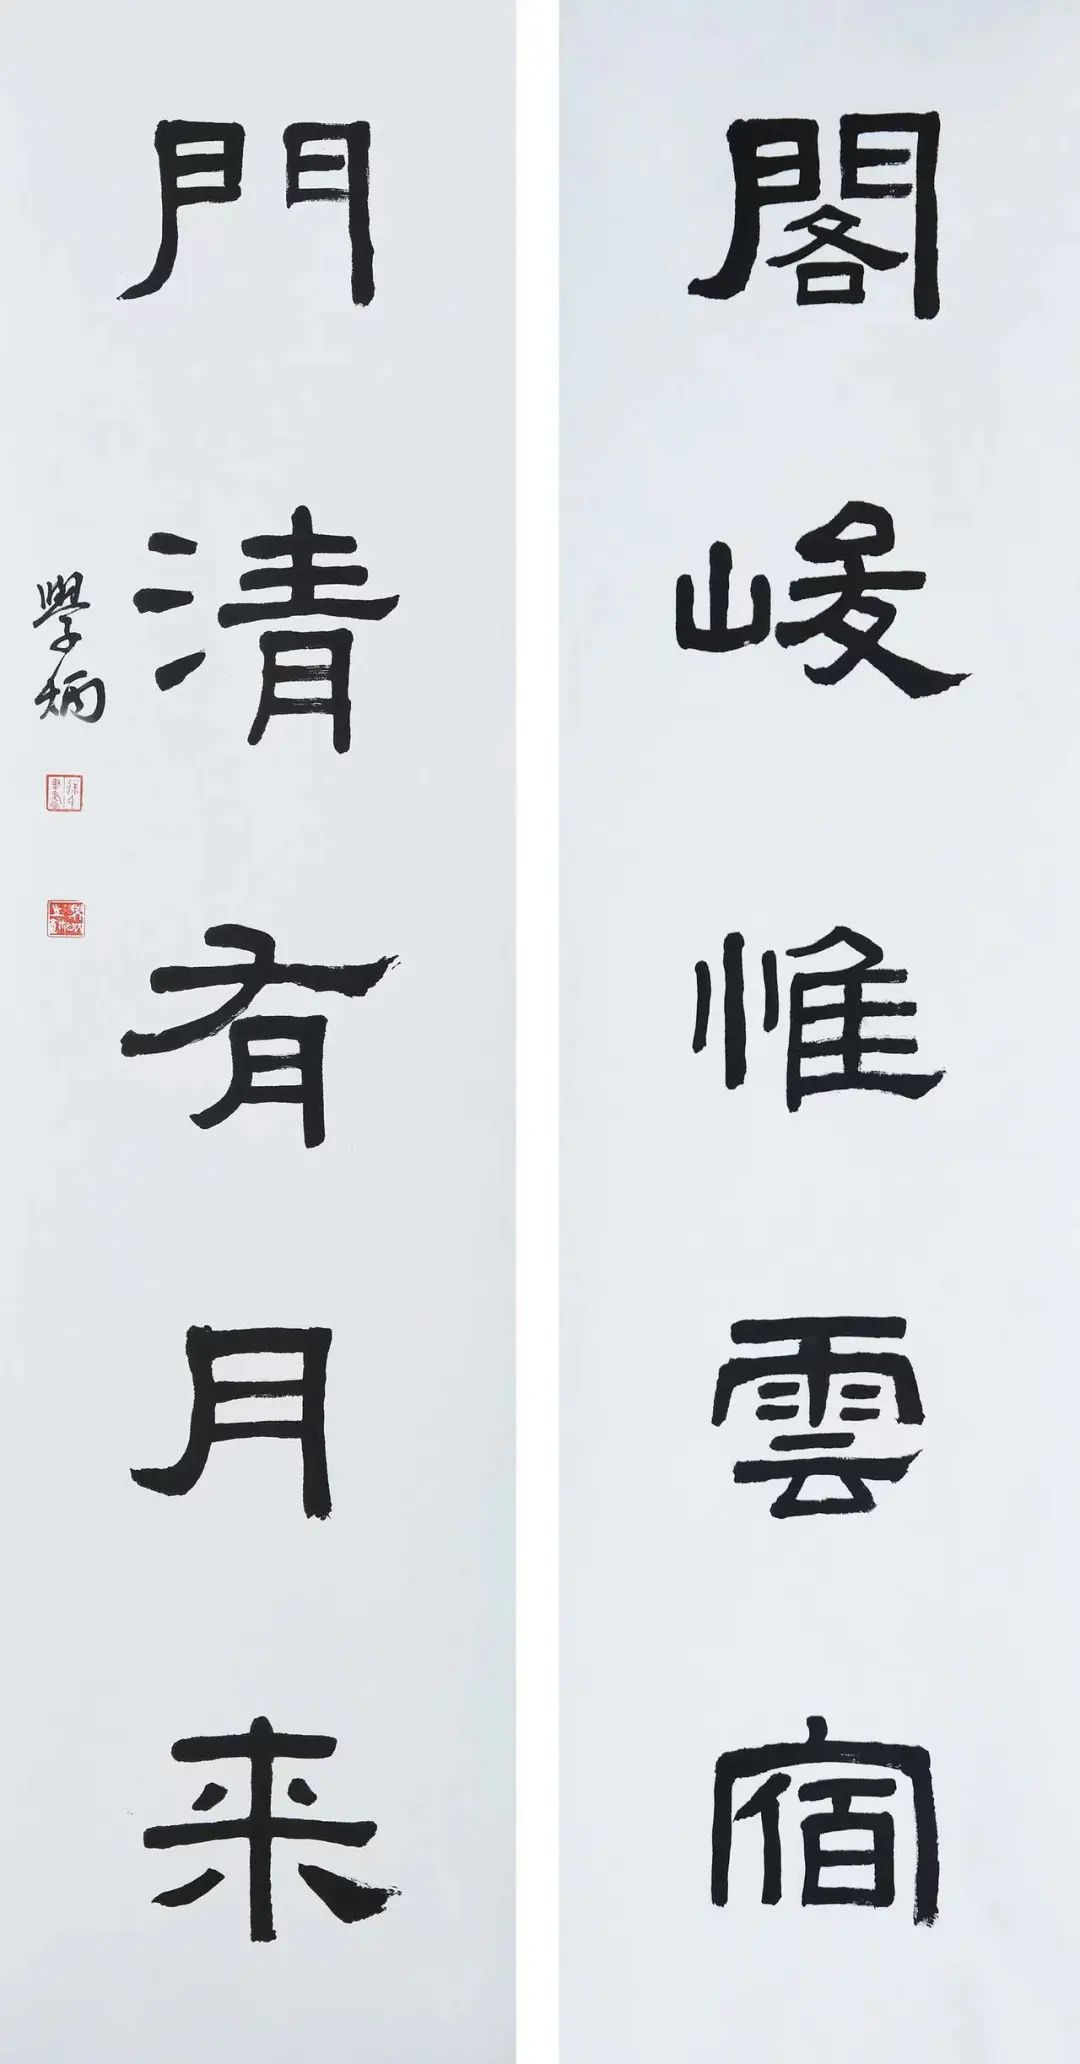 閣峻惟雲宿
門清有月来
學炳